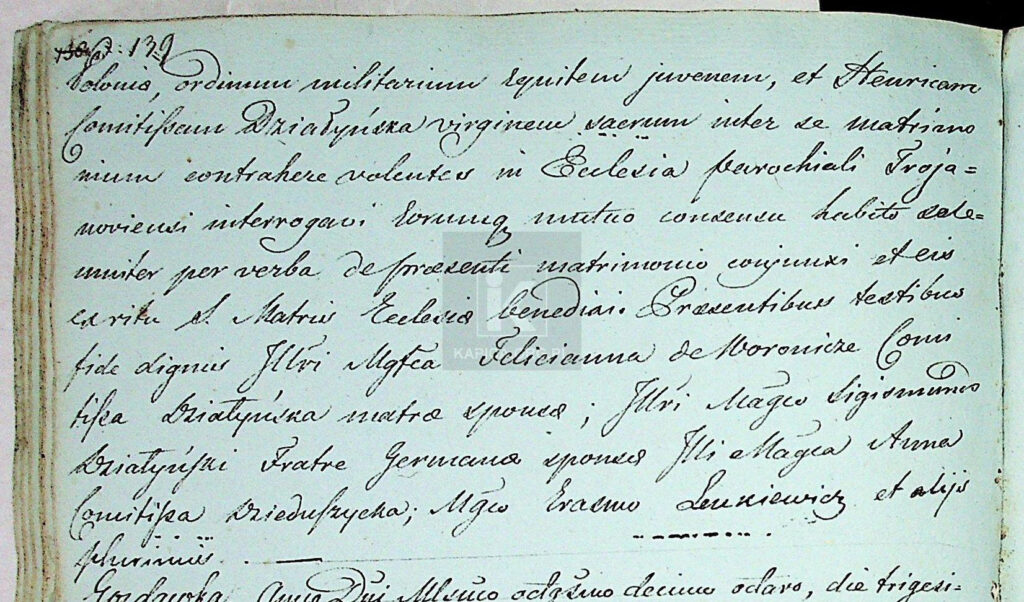 139
Polonia, ordinum militarium Equitem juvenem, et Henricam
Comitissam Działyńska virginem sacrum inter se matrimo
nium contrahere volentes in Ecclesia parochiali Troja=
noviensi interrogavi Eorumq mutuo consensu habito sole=
mniter per verba de præsenti matrimonio conjunxi et eis
ex ritu S. Matris Ecclesiæ benedixi. Præsentibus testibus
fide dignis Illri Mgfca Felicianna de Woronicze Comi
tissa Działyńska matre sponsæ; Illri Magco Sigismundo
Działyński Fratre Germano sponsæ Illi Magca Anna
Comitissa Dzieduszycka; Mgco Erasmo Lenkiewicz et alijs
plurimis.
Gozdawka Anno Dni Mlsmo octgsmo decimo octavo, die trigesi-